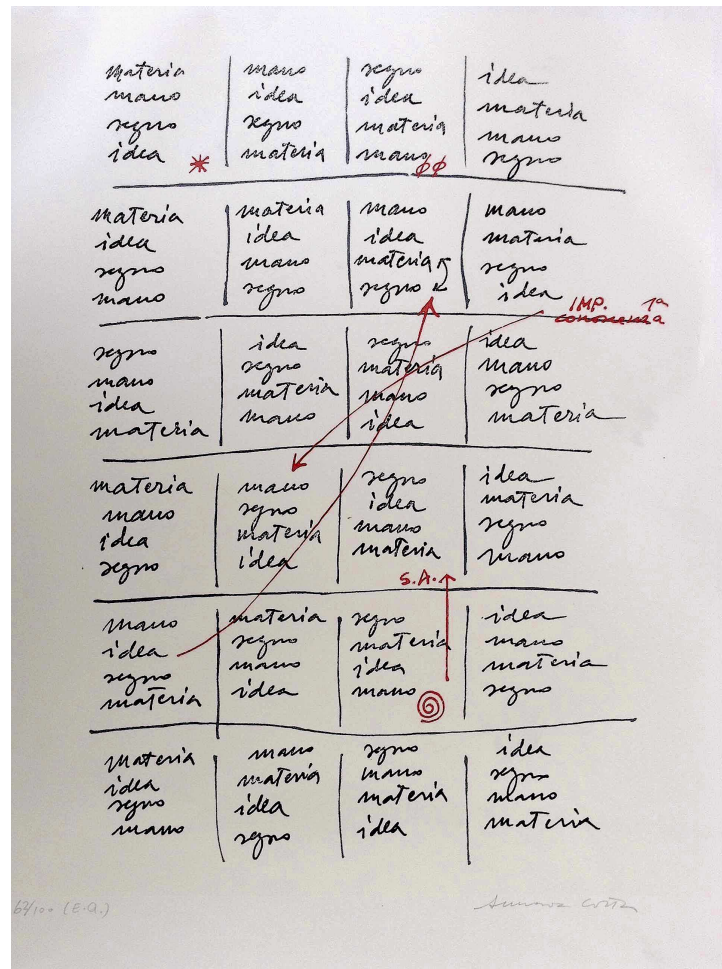 materia
mano
segno
idea *
mano
idea
segno
materia
segno
idea
materia
mano ϕϕ
idea
materia
mano
segno
materia
idea
segno
mano
materia
idea
mano
segno
mano
idea
materia
segno
mano
materia
segno
idea
IMP. 1ª
conoscenza
segno
mano
idea
materia
idea
segno
materia
mano
segno
materia
mano
idea
idea
mano
segno
materia
materia
mano
idea
segno
mano
segno
materia
idea
segno
idea
mano
materia
idea
materia
segno
mano
S.A.
mano
idea
segno
materia
materia
segno
mano
idea
segno
materia
idea
mano
idea
mano
materia
segno
materia
idea
segno
mano
mano
materia
idea
segno
segno
mano
materia
idea
idea
segno
mano
materia
(E.A.)
Costa